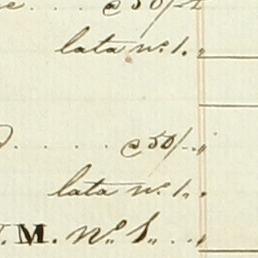 @ 50/-
lata nº 1.
@ 50/-
lata nº 1.
M. Nº 1.